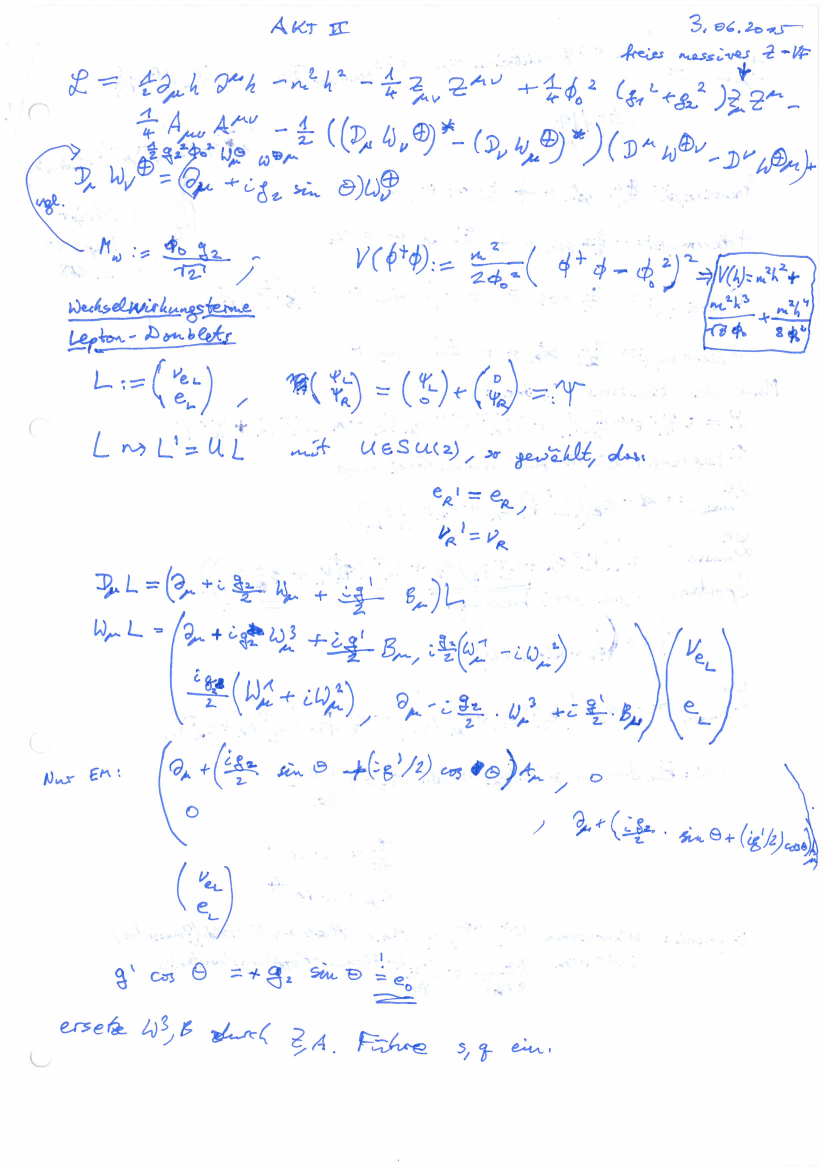 AKT II
3.06.2015
freies massives Z-VF
↓
ℒ = ½ ∂_μ h ∂^μ h − m² h² − ¼ Z_μν Z^μν + ¼ ϕ₀² (g₁² + g₂²) Z_μ Z^μ −
¼ A_μν A^μν − ½ ((D_μ W_ν^⊕)* − (D_ν W_μ^⊕)*) (D^μ W^⊕ν − D^ν W^⊕μ) +
½ g₂² ϕ₀² W_μ^⊖ W^⊕μ
D_μ W_ν^⊕ = (∂_μ + i g₂ sin θ) W_ν^⊕
vgl.
M_W := ϕ₀ g₂ / √2 ;
V(ϕ†ϕ) := m² / 2ϕ₀² ( ϕ†ϕ − ϕ₀² )² ⇒ V(h) = m²h² +
m²h³ / √2 ϕ₀ + m²h⁴ / 8 ϕ₀²
Wechselwirkungsterme
Lepton-Doublets
L := (ν_eL, e_L) , (ψ_L, ψ_R) = (ψ_L, 0) + (0, ψ_R) =: Ψ
L ⇝ L' = U L mit U ∈ SU(2), so gewählt, dass
e_R' = e_R,
ν_R' = ν_R
D_μ L = (∂_μ + i g₂/2 W_μ + i g'/2 B_μ) L
W_μ L = (∂_μ + i g₂ W_μ³ + i g'/2 B_μ, i g₂/2 (W_μ¹ − i W_μ²)
i g₂/2 (W_μ¹ + i W_μ²), ∂_μ − i g₂/2 · W_μ³ + i g'/2 · B_μ) (ν_eL, e_L)
Nur EM: (∂_μ + (i g₂/2 sin θ + (i g'/2) cos θ) A_μ , 0
0 , ∂_μ + (i g₂/2 · sin θ + (i g'/2) cos θ) A_μ)
(ν_eL, e_L)
g' cos θ = + g₂ sin θ =! e₀
ersetze W³, B durch Z, A. Führe s, q ein.